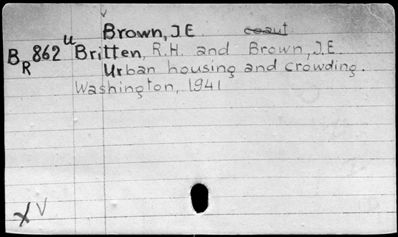 Brown, J.E. coaut
BR862u Britten, R.H. and Brown, J.E.
Urban housing and crowding.
Washington, 1941
XV